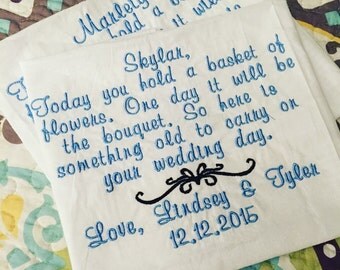 Skylar,
Today you hold a basket of
flowers. One day it will be
the bouquet. So here is
something old to carry on
your wedding day.
Love, Lindsey & Tyler
12.12.2015